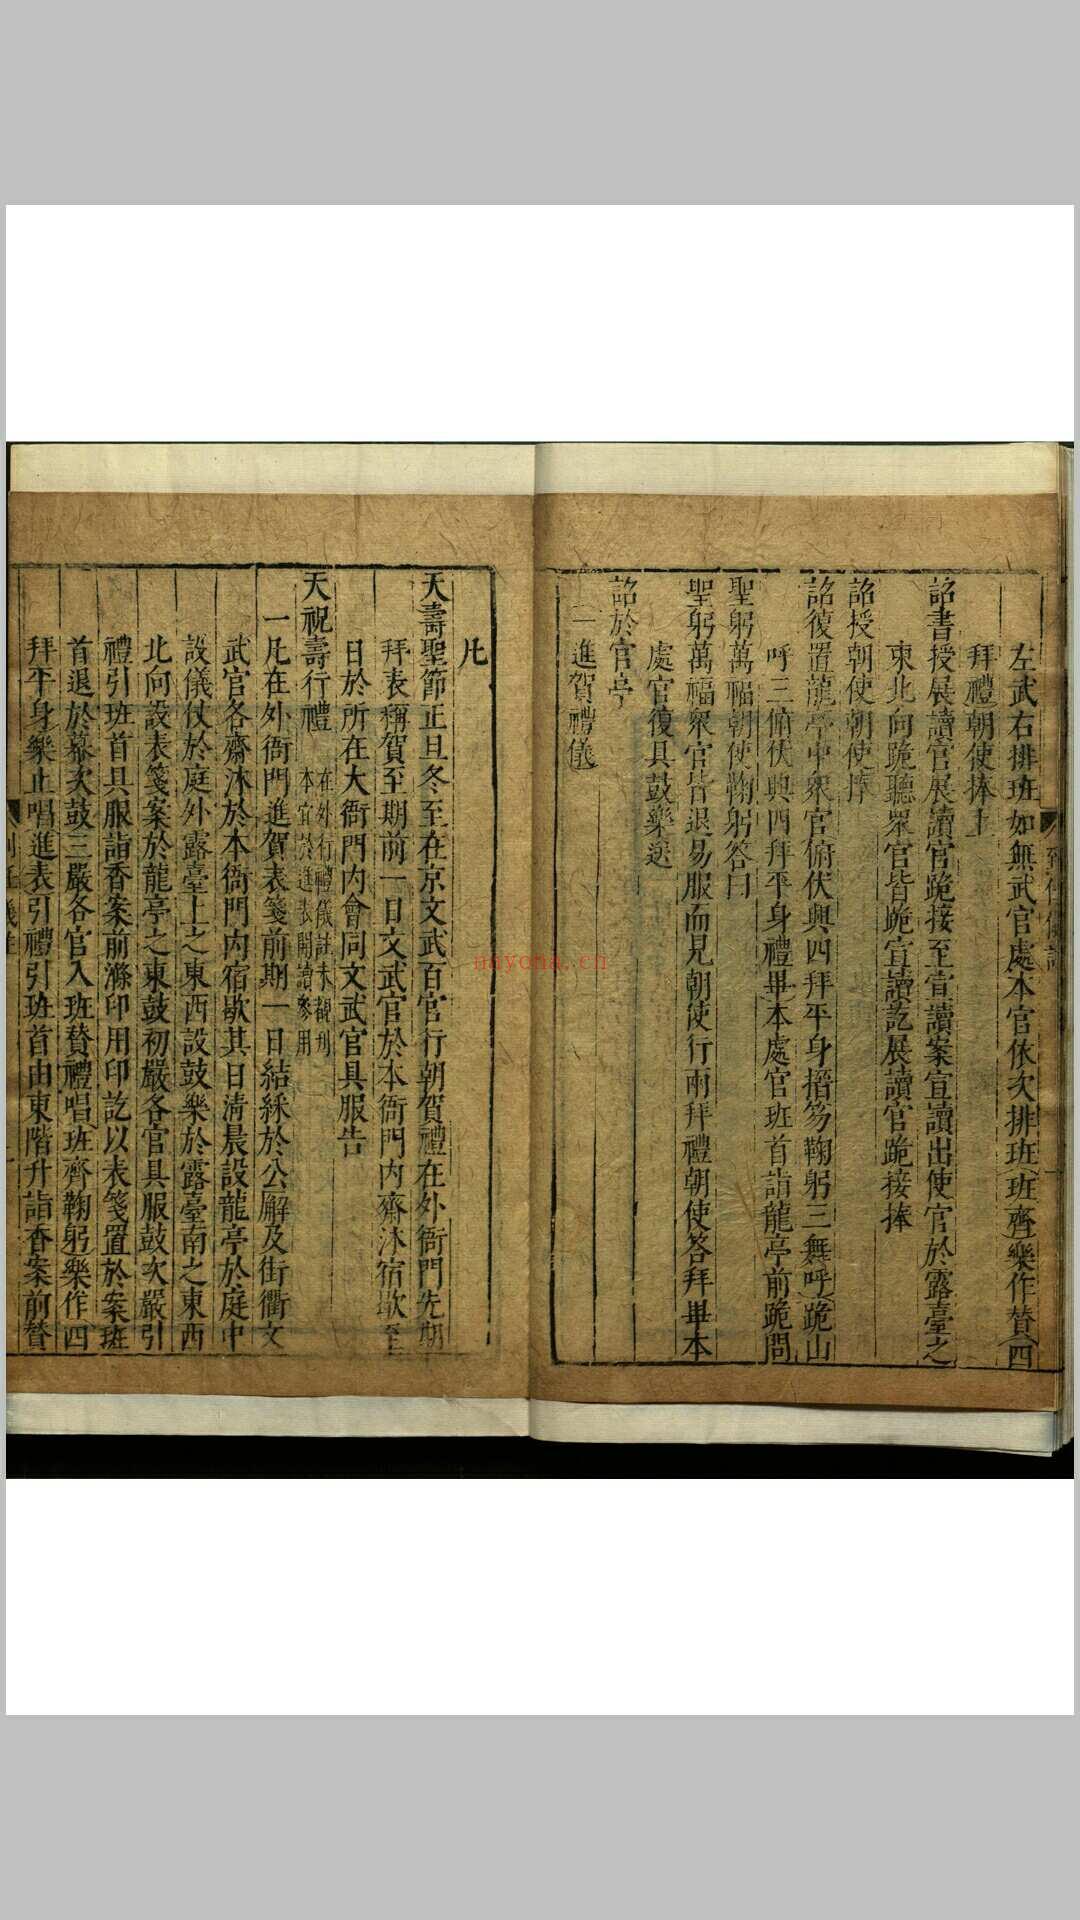 左武右排班如無武官處本官依次排班班齊樂作贊四
拜禮朝使捧上
詔書授展讀官展讀官跪接至宣讀案宣讀出使官於露臺之
東北向跪聽眾官皆跪宣讀訖展讀官跪接捧
詔授朝使朝使捧
詔復置龍亭中眾官俯伏興四拜平身搢笏鞠躬三舞呼跪山
呼三俯伏興四拜平身禮畢本處官班首詣龍亭前跪問
聖躬萬福朝使鞠躬答曰
聖躬萬福眾官皆退易服而見朝使行兩拜禮朝使答拜畢本
處官復具鼓樂送
詔於官亭
一進賀禮儀
凡
天壽聖節正旦冬至在京文武百官行朝賀禮在外衙門先期
拜表稱賀至期前一日文武官於本衙門內齋沐宿歇至
日於所在大衙門內會同文武官具服告
天祝壽行禮
在外行禮儀註未觀刊
本宜於進表開讀參用
一凡在外衙門進賀表箋前期一日結綵於公廨及街衢文
武官各齋沐於本衙門內宿歇其日清晨設龍亭於庭中
設儀仗於庭外露臺上之東西設鼓樂於露臺南之東西
北向設表箋案於龍亭之東鼓初嚴各官具服鼓次嚴引
禮引班首具服詣香案前滌印用印訖以表箋置於案班
首退於幕次鼓三嚴各官入班贊禮唱班齊鞠躬樂作四
拜平身樂止唱進表引禮引班首由東階升詣香案前贊
nayona.cn